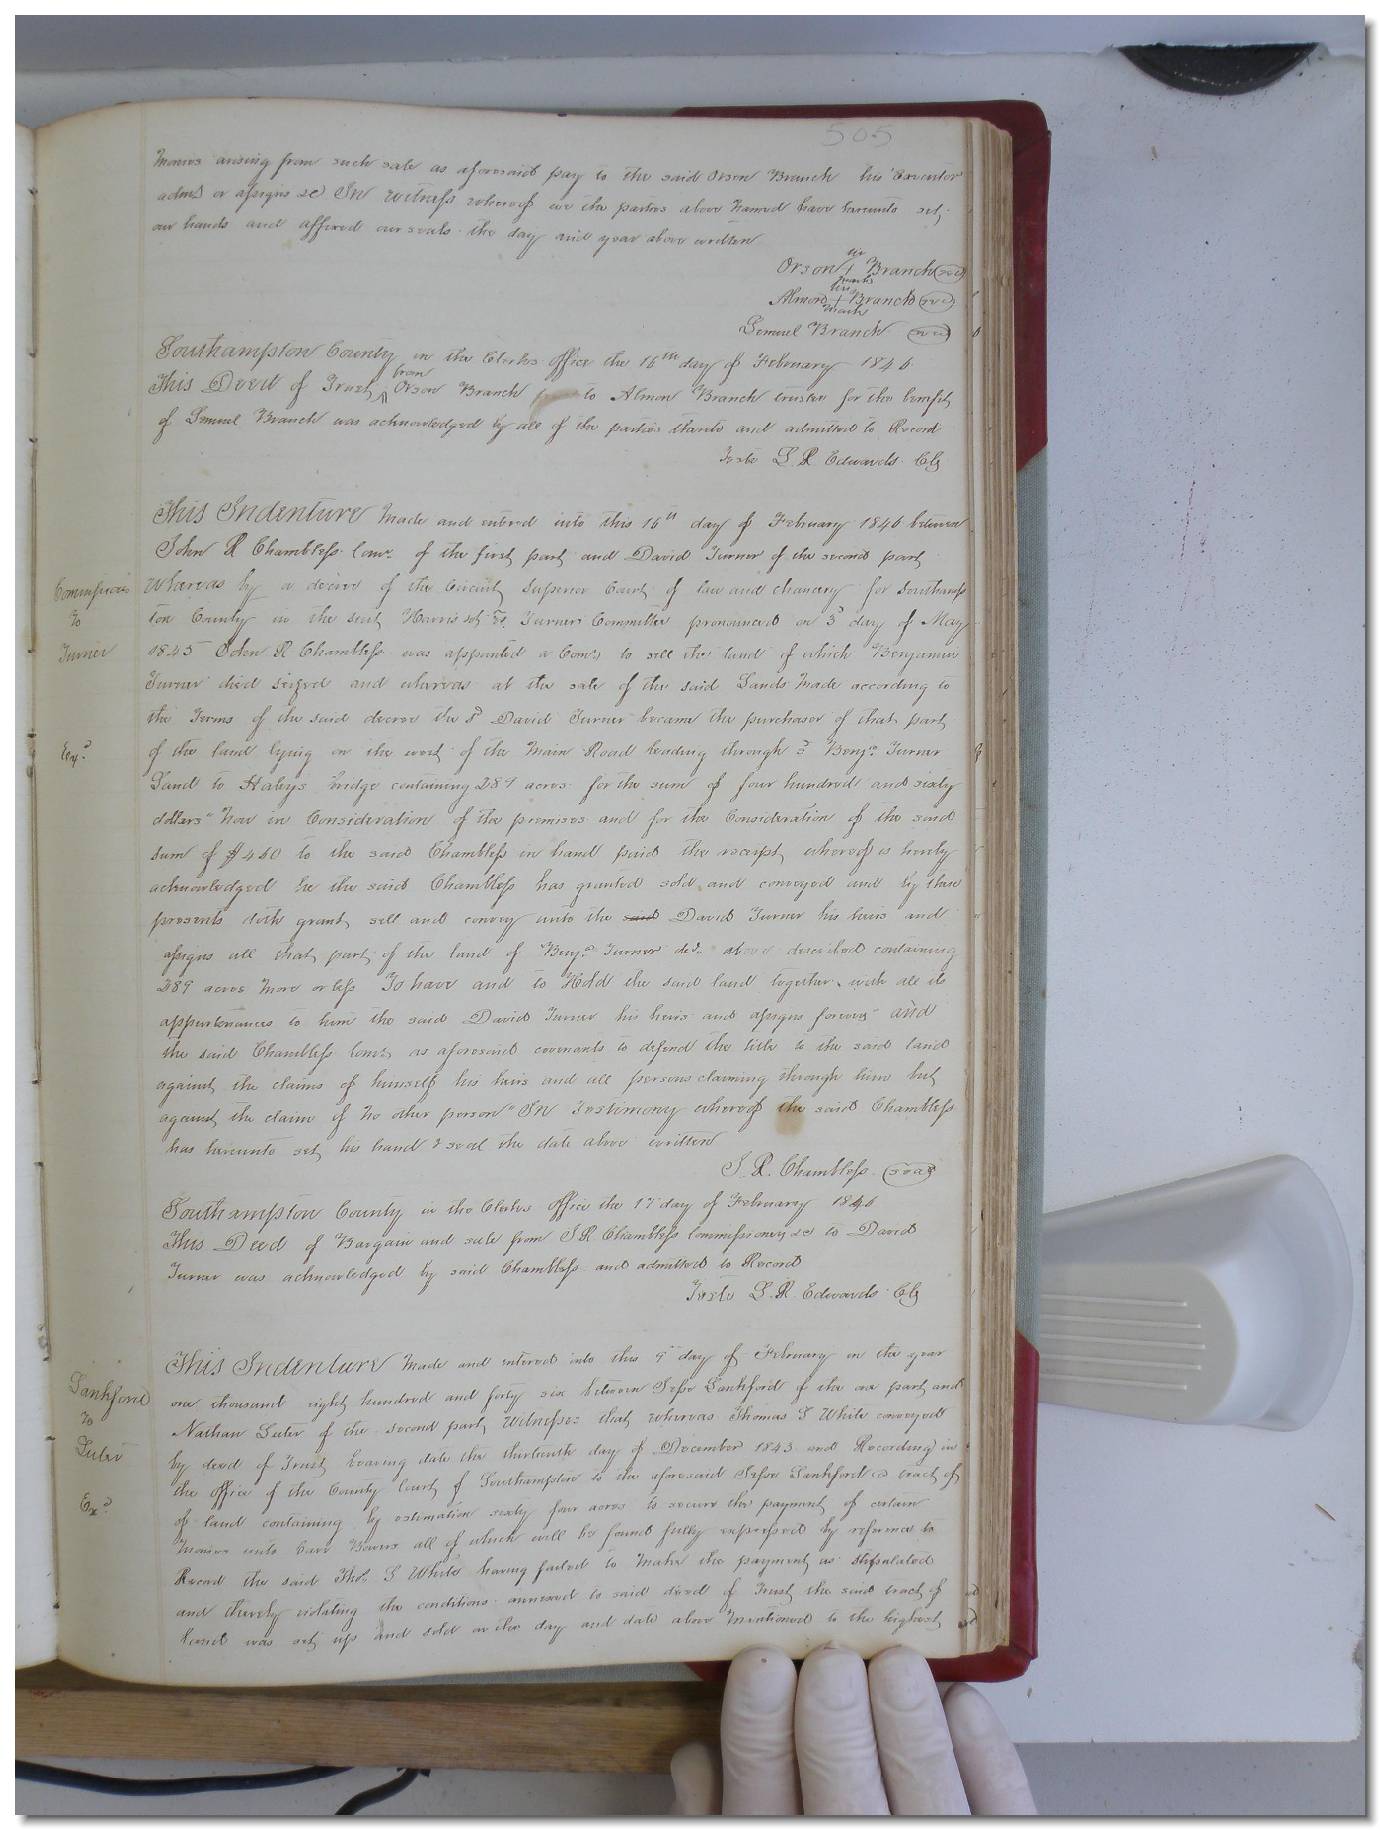 505
monies arising from such sale as aforesaid pay to the said Orson Branch his Executor
adms or assigns &c In witness whereof we the parties above named have hereunto set
our hands and affixed our seals the day and year above written
his
Orson + Branch (seal)
mark
his
Almon + Branch (seal)
mark
Lemuel Branch (seal)
Southampton County in the Clerks Office the 16th day of February 1846
from
This Deed of Trust ^ Orson Branch to Almon Branch trustee for the benefit
of Lemuel Branch was acknowledged by all of the parties thereto and admitted to Record
Teste L. R. Edwards Clk
This Indenture Made and entered into this 16th day of February 1846 between
John R Chambless Comr. of the first part and David Turner of the second part
Commissioner
to
Turner
Whereas by a decree of the Circuit Superior Court of law and chancery for Southamp
ton County in the suit Harris vs Turners Committee pronounced on 3d day of May
1845 John R Chambless was appointed a Comr to sell the land of which Benjamin
Turner died seized and whereas at the sale of the said Lands made according to
the Terms of the said decree the sd David Turner became the purchaser of that part
Exd
of the land lying on the west of the Main Road leading through sd Benjn Turner
Land to Haleys bridge containing 289 acres for the sum of four hundred and sixty
dollars" Now in Consideration of the premises and for the Consideration of the said
sum of $460 to the said Chambless in hand paid the receipt whereof is hereby
acknowledged he the said Chambless has granted sold and conveyed and by these
presents doth grant sell and convey unto the said David Turner his heirs and
assigns all that part of the land of Benjn Turner decd. above described containing
289 acres more or less To have and to Hold the said land together with all its
appurtenances to him the said David Turner his heirs and assigns forever and
the said Chambless Comr as aforesaid covenants to defend the title to the said land
against the claims of himself his heirs and all persons claiming through him but
against the claim of no other person" In Testimony whereof the said Chambless
has hereunto set his hand & seal the date above written
J. R. Chambless (seal)
Southampton County in the Clerks Office the 17 day of February 1846
This Deed of Bargain and sale from J R Chambless Commissioner &c to David
Turner was acknowledged by said Chambless and admitted to Record
Teste L. R. Edwards Clk
Lankford
to
Suter
Exd
This Indenture Made and entered into this 9th day of February in the year
one thousand eight hundred and forty six between Jesse Lankford of the one part and
Nathan Suter of the second part Witnesses that whereas Thomas S White conveyed
by deed of Trust bearing date the thirteenth day of December 1843 and Recording in
the Office of the County Court of Southampton to the aforesaid Jesse Lankford a tract of
of land containing by estimation sixty four acres to secure the payment of certain
monies unto Bowers all of which will be found fully expressed by reference to
Record the said Thos. S White having failed to make the payment as stipulated
and thereby violating the conditions annexed to said deed of Trust the said tract of
land was set up and sold on the day and date above mentioned to the highest